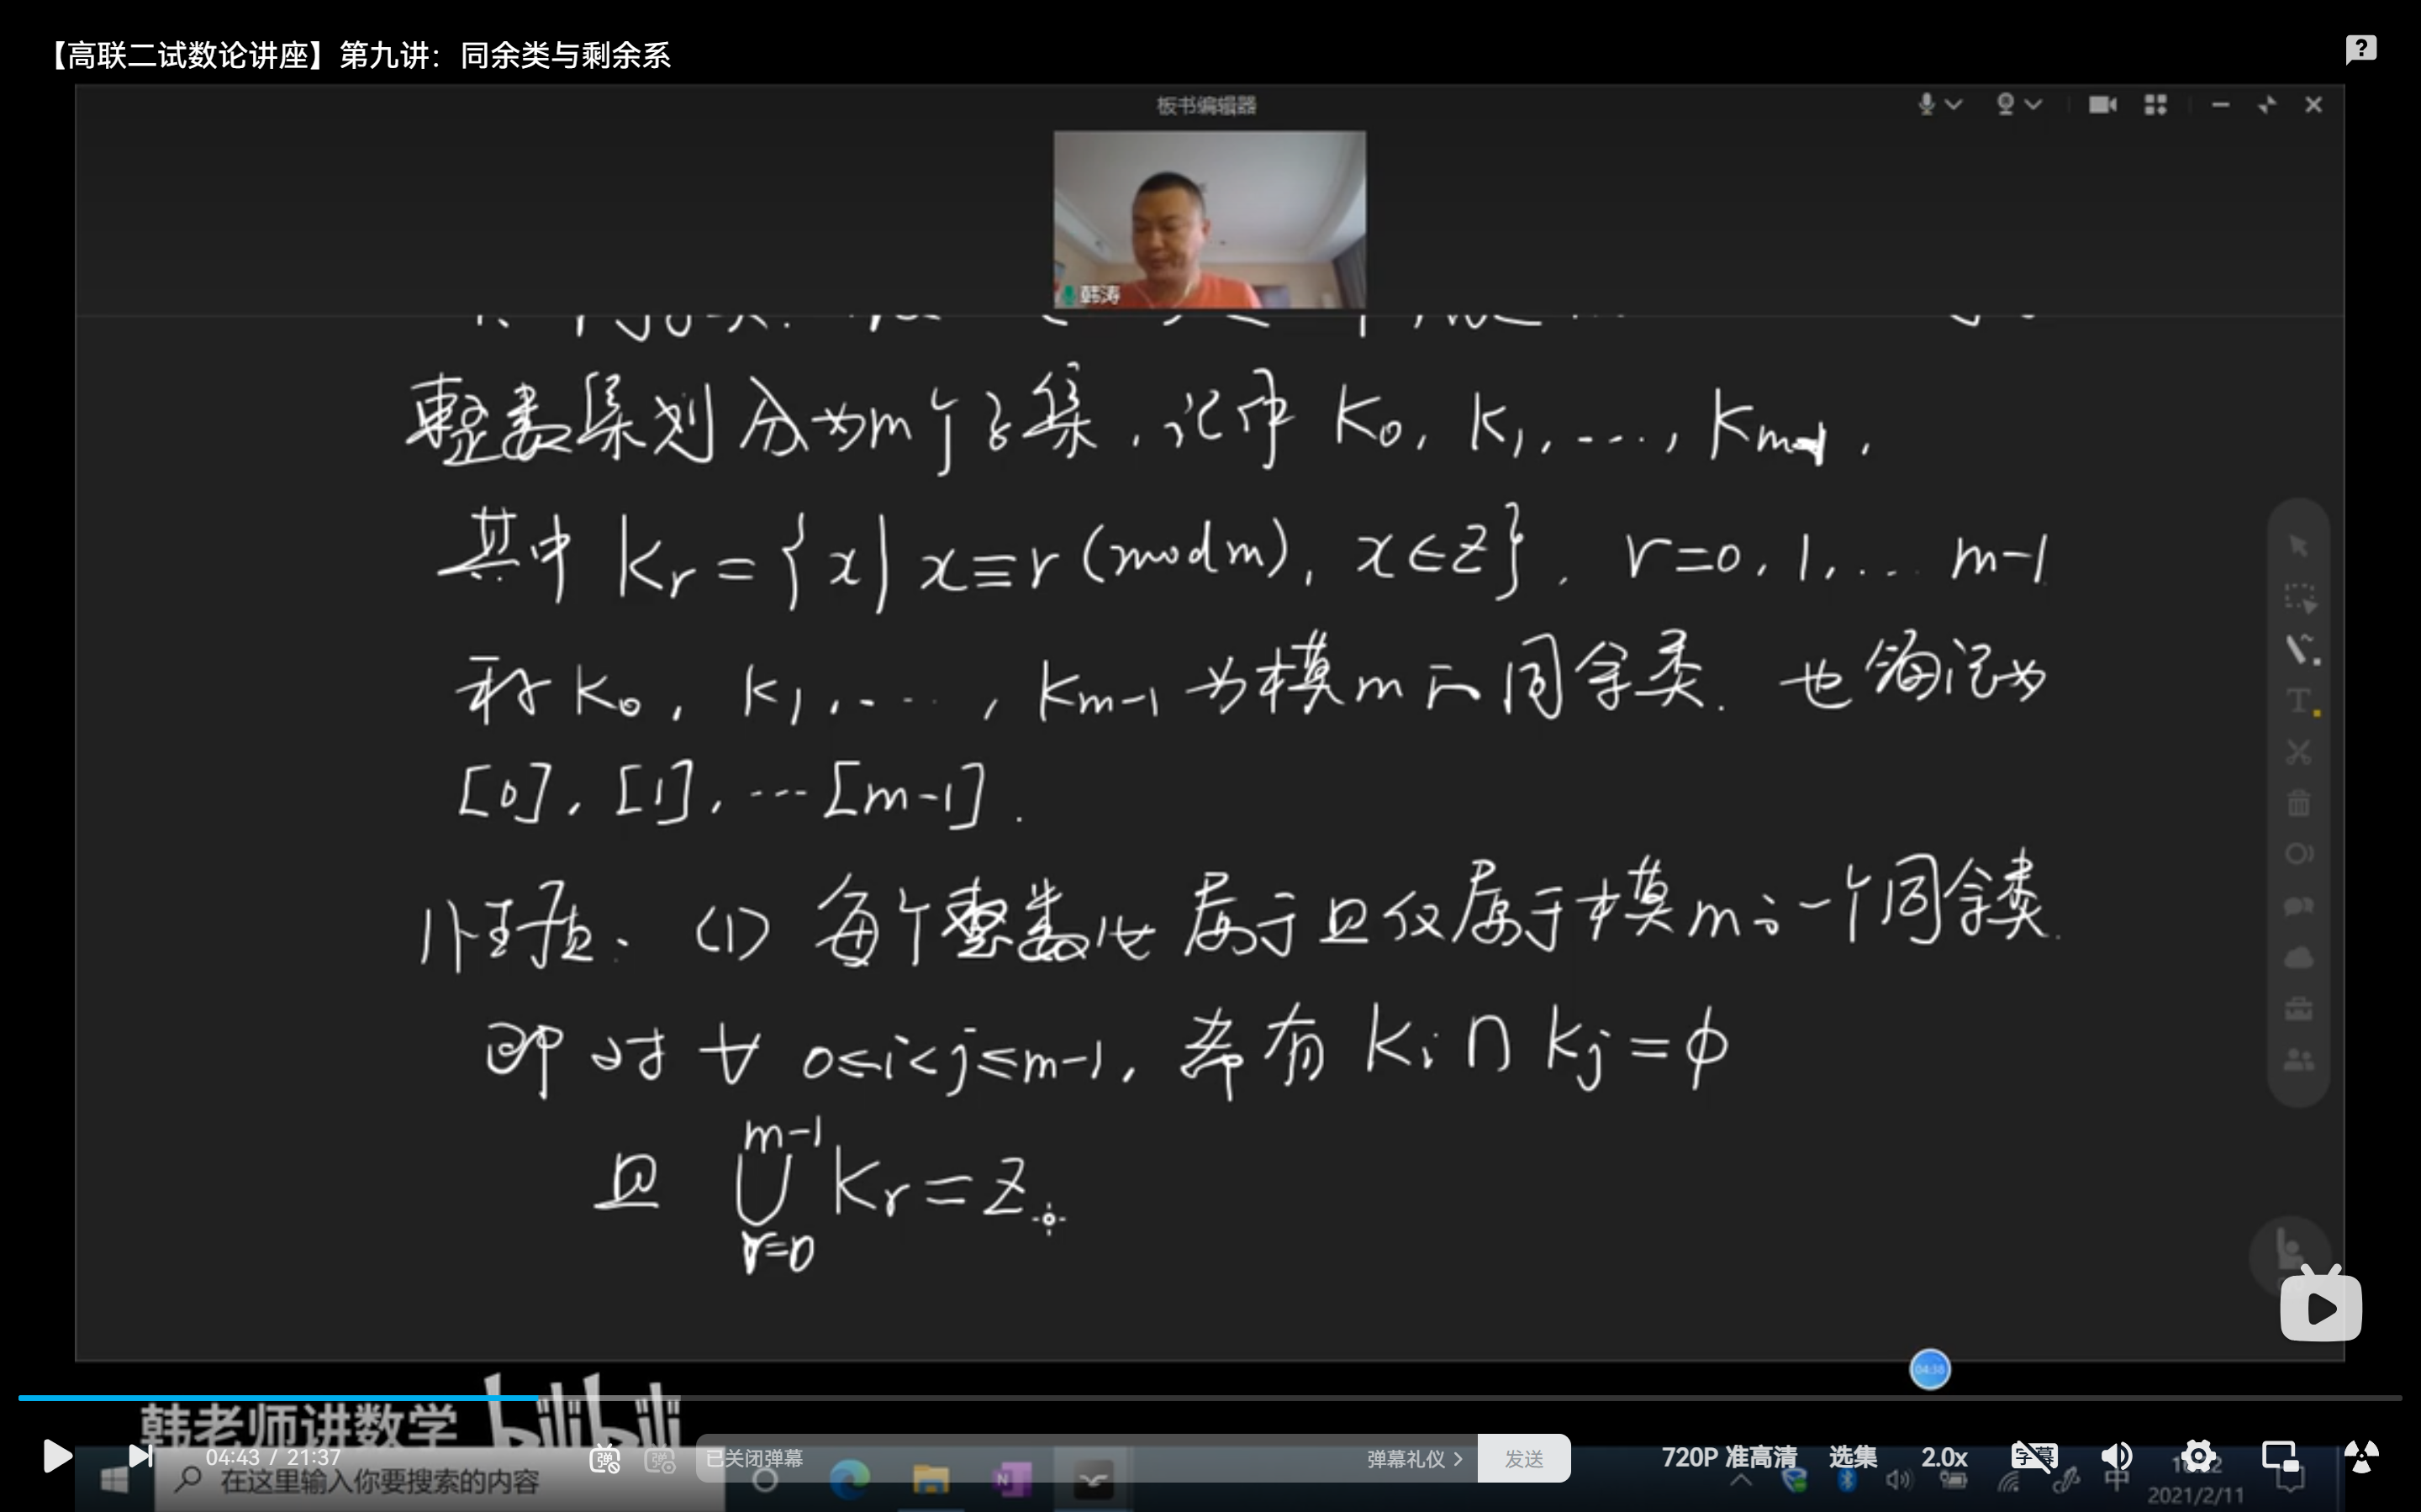 【高联二试数论讲座】第九讲：同余类与剩余系
板书编辑器
韩涛
整数集划分为m个子集，记作 K₀, K₁, ..., Kₘ₋₁,
其中 Kᵣ={x|x≡r(modm), x∈Z}, r=0,1,... m-1
称K₀, K₁, ..., Kₘ₋₁为模m的同余类. 也简记为
[0], [1], ...[m-1].
性质: (1) 每个整数必属于且仅属于模m的一个同余类.
即对∀ 0≤i<j≤m-1, 都有 Kᵢ∩Kⱼ=ϕ
m-1
且 ∪Kᵣ=Z.
r=0
04:38
韩老师讲数学 bilibili
04:43 / 21:37
弹
弹
已关闭弹幕
弹幕礼仪 >
发送
720P 准高清
选集
2.0x
字幕
在这里输入你要搜索的内容
中
2021/2/11